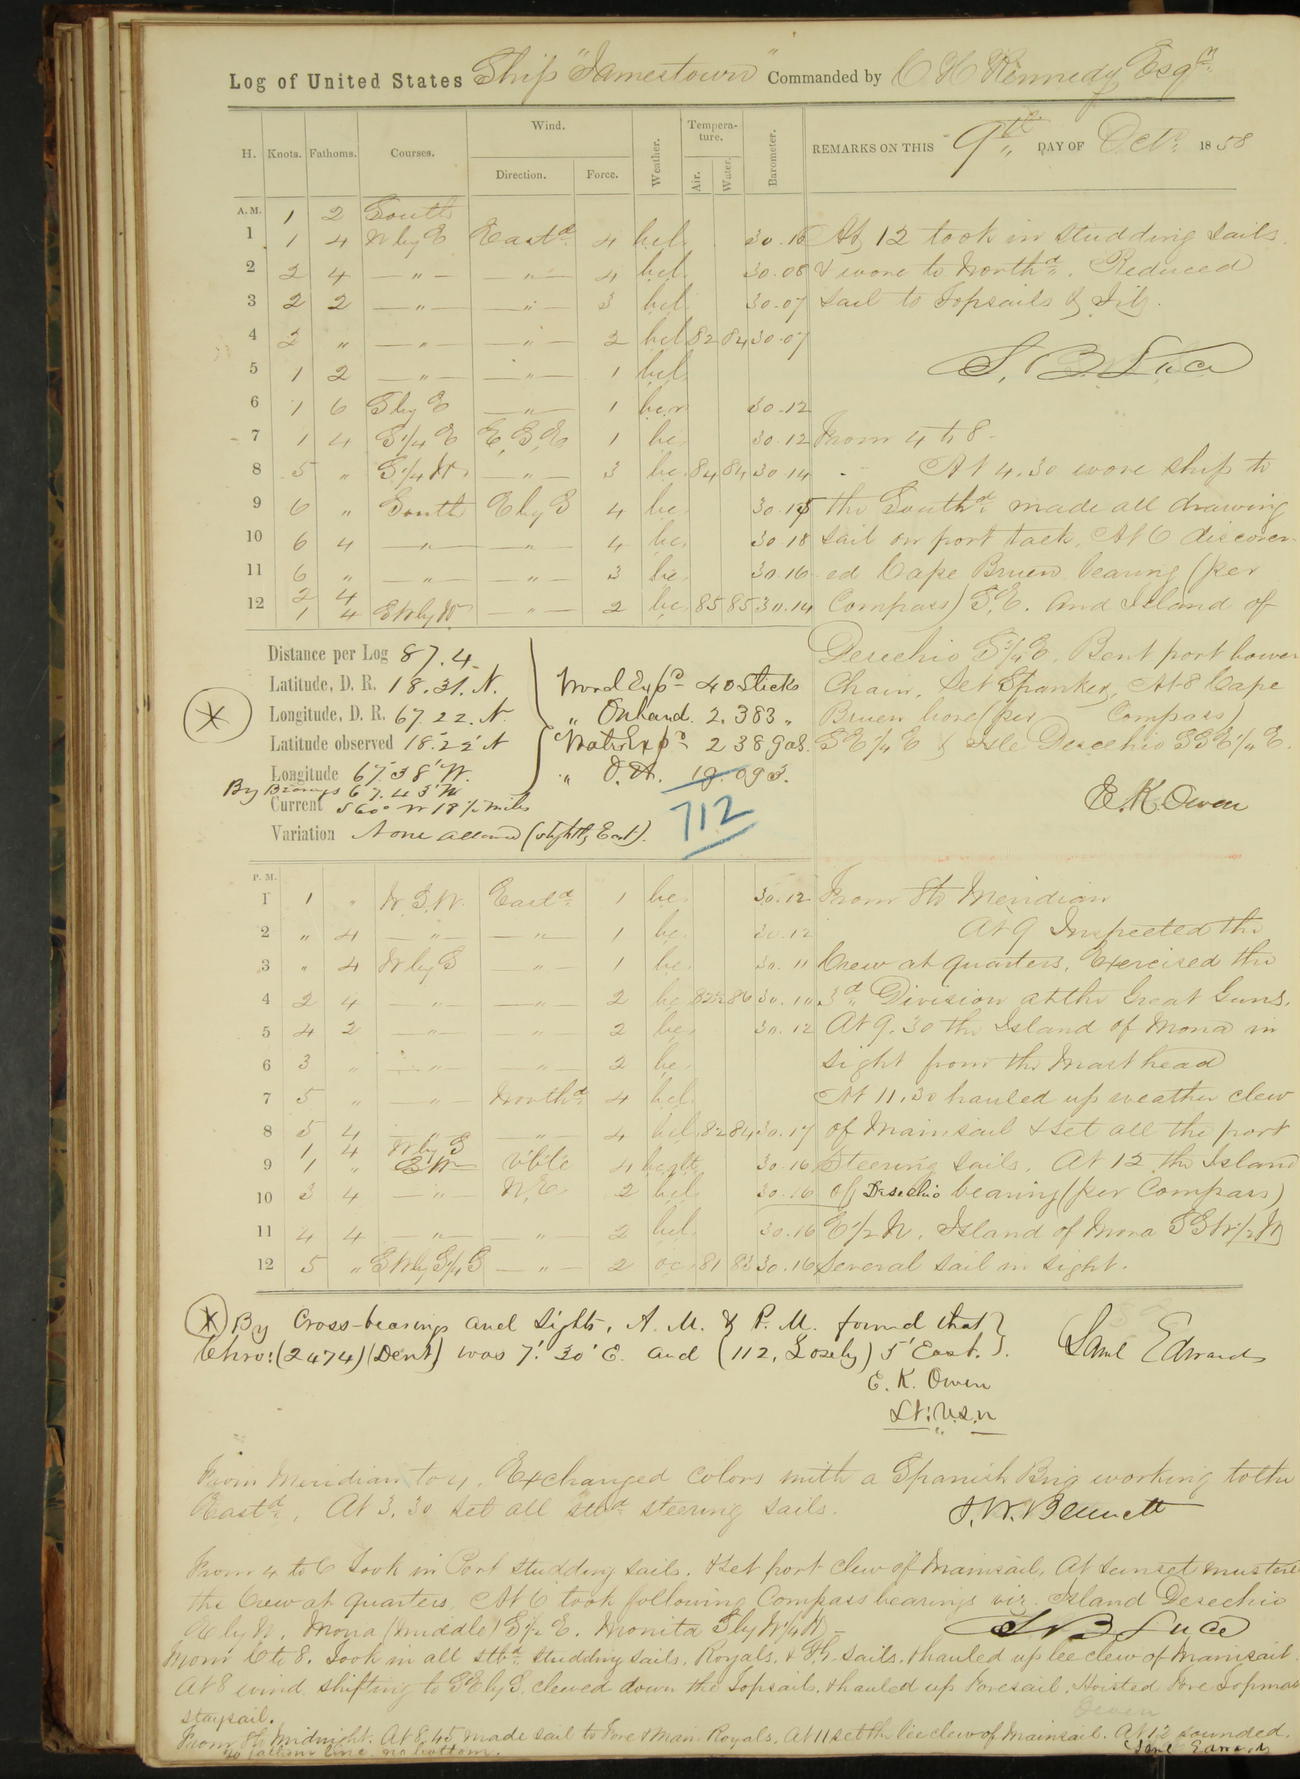 Log of United States Ship "Jamestown" Commanded by C H Kennedy Esqr.
H. Knots. Fathoms. Courses. Wind. Direction. Force. Weather. Tempera-ture. Air. Water. Barometer. REMARKS ON THIS 9th DAY OF Oct. 1858
A.M. 1 2 South
1 1 4 N by E East'd 4 bcl 30.10 At 12 took in studding sails
2 2 4 — " — — " — 4 bcl 30.08 & wore to North'd. Reduced
3 2 2 — " — — " — 3 bcl 30.07 sail to Topsails & Jib.
4 2 " — " — — " — 2 bcl 82 84 30.07
S. B. Luce
5 1 2 — " — — " — 1 bcl
6 1 6 S by E — " — 1 bcr 30.12
7 1 4 S 1/4 E E.S.E 1 bc 30.12 From 4 to 8.
8 5 " S 1/4 W — " — 3 bc 84 84 30.14 At 4.30 wore ship to
9 6 " South E by S 4 bc 30.15 the South'd made all drawing
10 6 4 — " — — " — 4 bc 30.18 sail on port tack. At 6 discover-
11 6 " — " — — " — 3 bc 30.16 ed Cape Bruen bearing (per
12 2 4
1 4 SW by W — " — 2 bc 85 85 30.14 Compass) S.E. and Island of
Distance per Log 87.4. Desechio S 3/4 E. Bent port bower
Latitude, D. R. 18.31. N. Wood Exp'd 40 Sticks Chain. Set Spanker, At 8 Cape
Longitude, D. R. 67.22. " On hand. 2,383 " Bruen bore (per Compass)
Latitude observed 18°.22' N Water Exp'd 238 gals. SE 1/4 E & Isle Desechio SSE 1/4 E.
Longitude 67.38' W. " O.H. 093.
By Bearings 67.43' W
Current S 60° W 18 1/2 miles 712 E. K. Owen
Variation None allowed (slightly East).
P. M.
1 1 " W.S.W. East'd 1 bc 30.12 From 8 to Meridian
2 " 4 — " — — " — 1 bc 30.12 At 9 Inspected the
3 " 4 W by S — " — 1 bc 30.11 Crew at quarters. Exercised the
4 2 4 — " — — " — 2 bc 86 30.10 3d Division at the Great Guns.
5 4 2 — " — — " — 2 bc 30.12 At 9.30 the Island of Mona in
6 3 " — " — — " — 2 bc sight from the Mast head
7 5 " — " — North'd 4 bcl At 11.30 hauled up weather clew
8 5 4 — " — — " — 4 bcl 82 84 30.17 of Mainsail & set all the port
1 4 W by S
9 1 " SW v'b'le 4 30.16 Steering sails. At 12 the Island
10 3 4 — " — N.E. 2 bcl 30.16 of Desechio bearing (per Compass)
11 4 4 — " — " 2 bcl 30.16 E 1/2 N. Island of Mona SSW 1/2 W
12 5 " SW by S 1/4 S — " — 2 oc 81 83 30.16 Several sail in sight.
By Cross-bearings and Sights, A. M. & P. M. found that
Chro: (2474) (Dent) was 7' 30" E. and (112, Losely) 5' East. Saml Edwards
E. K. Owen
Lt: U.S.N
From Meridian to 4. Exchanged Colors with a Spanish Brig working to the
East'd. At 3.30 set all stb'd steering sails. J. W. Bennett
From 4 to 6 Took in Port studding sails. & set port clew of Mainsail, At sunset mustered
the Crew at quarters. At 6 took following Compass bearings viz. Island Desechio
E by N. Mona (middle) S 1/2 E. Monita S by W 1/4 W — S B. Luce
From 6 to 8. Took in all stb'd studding sails. Royals, & sails. & hauled up lee clew of Mainsail.
At 8 wind shifting to SE by S. clewed down the Topsails. & hauled up Foresail. Hoisted Fore Topmast
staysail. Owen
From 8 to Midnight. At 8.45 made sail to Fore & Main Royals. At 11 set the lee clew of Mainsail. At 12 sounded.
fathom line no bottom. Saml Edwards